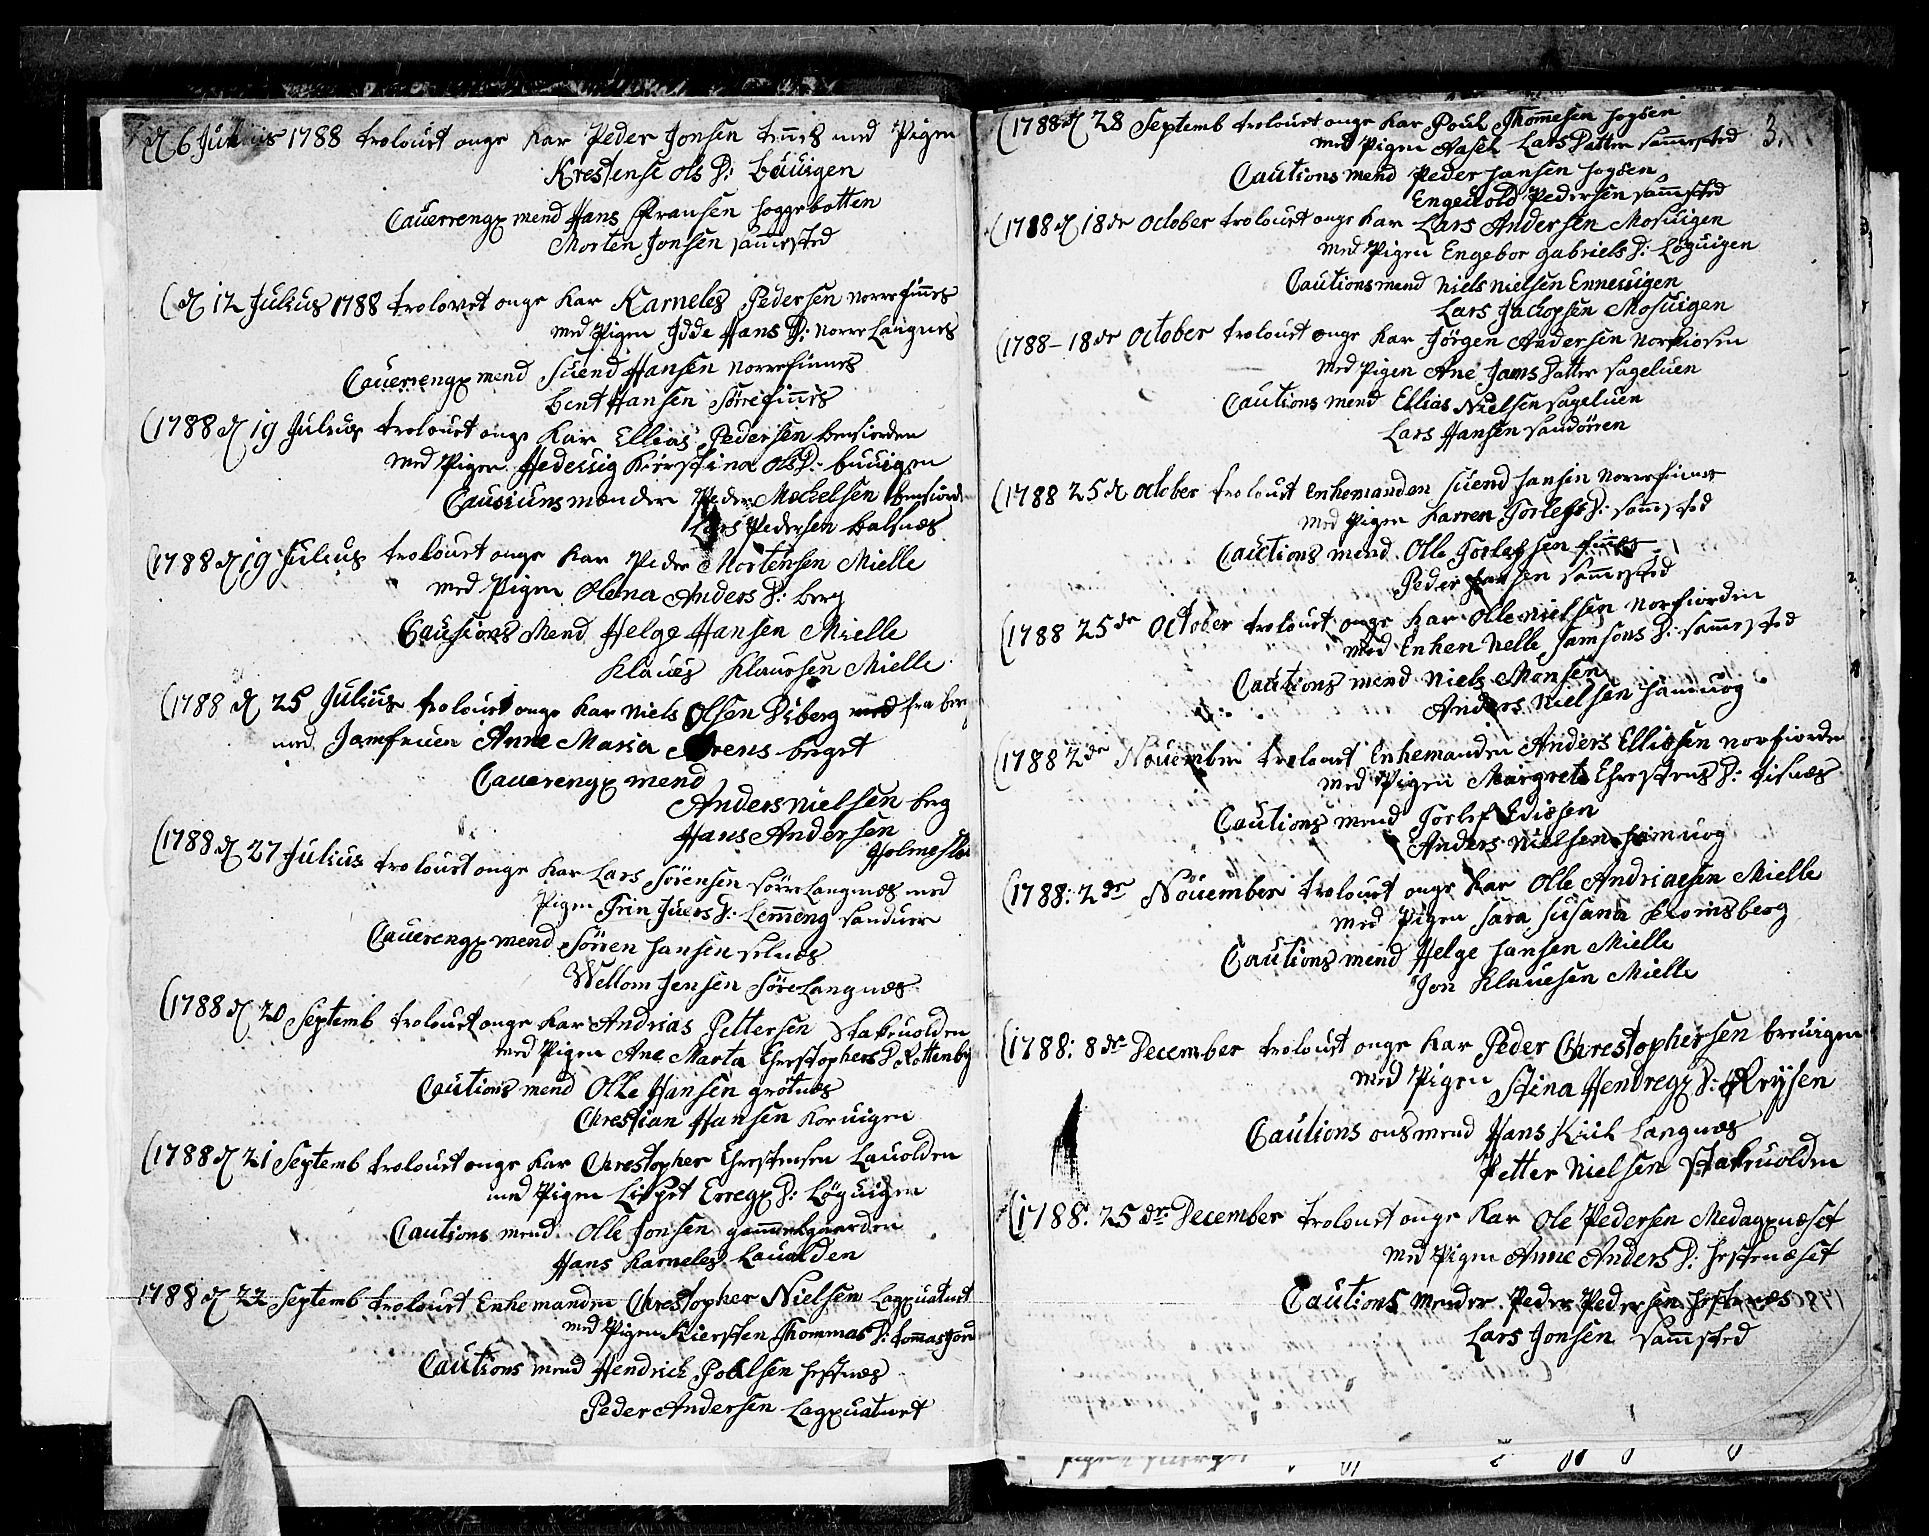 d 6 Junius 1788 trolourt onge Kar Peder Jonsen finnes med Pigen
Krestense ols D: buuigen
Cauerrengx mend Hans Fransen hoggebotten
Morten Jonsen sammested
(d 12 Julius 1788 trolovet onge Kar Karneles Pedersen norrefinnes
med Pigen Idde Hans D: norre Langnes
Cauerrengx mend Suend Hansen norrefinnes
bent Hansen Sörrefinnes
(1788 d 19 Julius trolourt onge Kar Ellias Pedersen bensiorden
med Pigen Hedessig Kierstina Ols D: buuigen
Causiuns mender Peder Mechelsen bensiord
Lars Pedersen balsnæs
(1788 d 19 Julius trolourt onge Kar Peder Mortensen Mielle
med Pigen Olena Anders D: berg
Causions Mend Helge Hansen Mielle
Klaues Klauesen Mielle
(1788 d 25 Julius trolourt onge Kar Niels Olsen Diberg fra berg
med Jomfruen Anne Maria Arens berget
Cauerengx mend
Anders nielsen berg
Hans Andersen
Holmeslet
(1788 d 27 Julius trolourt onge Kar Lars Sörensen sörre Langnæs med
Pigen Trin Juers D: Lemmeng sanduer
Cauerengx mend Sörren hansen selnæs
Wellom Jensen Söre Langnæs
(1788 d 20 Septemb trolourt onge Kar Andrias Pettersen Stakuolden
med Pigen Ane Marta Chrestophers D Rottenby
Cautions mend Olle Hansen grötnæs
Chrestian Hansen Koruigen
(1788 d 21 Septemb trolourt onge Kar Chrestopher Chrestensen Lauolden
med Pigen Lispet Erregx D: Löguigen
Cautions mend Olle Jonsen gammelgaarden
Hans Karneles Lauolden
1788 d 22 Septemb trolourt Enkemanden Chrestopher Nielsen Lagxuatnet
med Pigen Kiersten Thommas D: tommasjord
Cautions mend Hendrich Poelsen hestnæs
Peder Andersen Lagxuatnet
3.
(1788 d 28 Septemb trolourt onge Kar Poul Thommesen hogsen
med Pigen Aasel Lars Datter sammested
Cautions mend Peder hansen hogsen
Engeuold Pedersen sammsted
(1788 d 18de October trolourt onge Kar Lars Andersen Mosuigen
med Pigen Engebor gabriels D: Löguigen
Cautions mend Niels Nielsen Ennessigen
Lars Jachopsen Mosuigen
(1788 – 18de October trolourt onge Kar Jörgen Andersen Norkiosen
med Pigen Ane Jams Datter sageluen
Cautions mend Ellias Nielsen sageluen
Lars Hansen sandören
(1788 25 d October trolourt Enkemanden suend hansen norrefinnes
med Pigen Karren Torlefs D: sammested
Cautions mend Olle Torlefsen finnes
Peder hansen sammested
(1788 25de October trolourt onge Kar Olle Nielsen norfiorden
med Enken nelle samsons D: sammested
Cautions mend Niels Monsen
Anders Nielsen hamuog
(1788 2de Nouember trolourt Enkemanden Anders Elliosen norfiorden
med Pigen Margrete Chrestens D: tisnæs
Cautions mend Torlef Edissen
Anders Nielsen hamuog
(1788: 2de Nöuember trolourt onge Kar Olle Andriaesen Mielle
med Pigen sara susana kromsberg
Cautions mend Helge hansen Mielle
Jon Klauesen Mielle
(1788: 8de December trolourt onge Kar Peder Chrestophersen breuigen
med Pigen Stina Hendregx D: Reysen
Cautions ons mend Hans Kiil Langnæs
Petter Nielsen Stakuolden
(1788: 25de December trolourt onge Kar Ole Pedersen Medagxnæset
med Pigen Anne Anders D: hestenæset
Cautions mender Peder Pedersen hestenæs
Lars Jonsen samsted